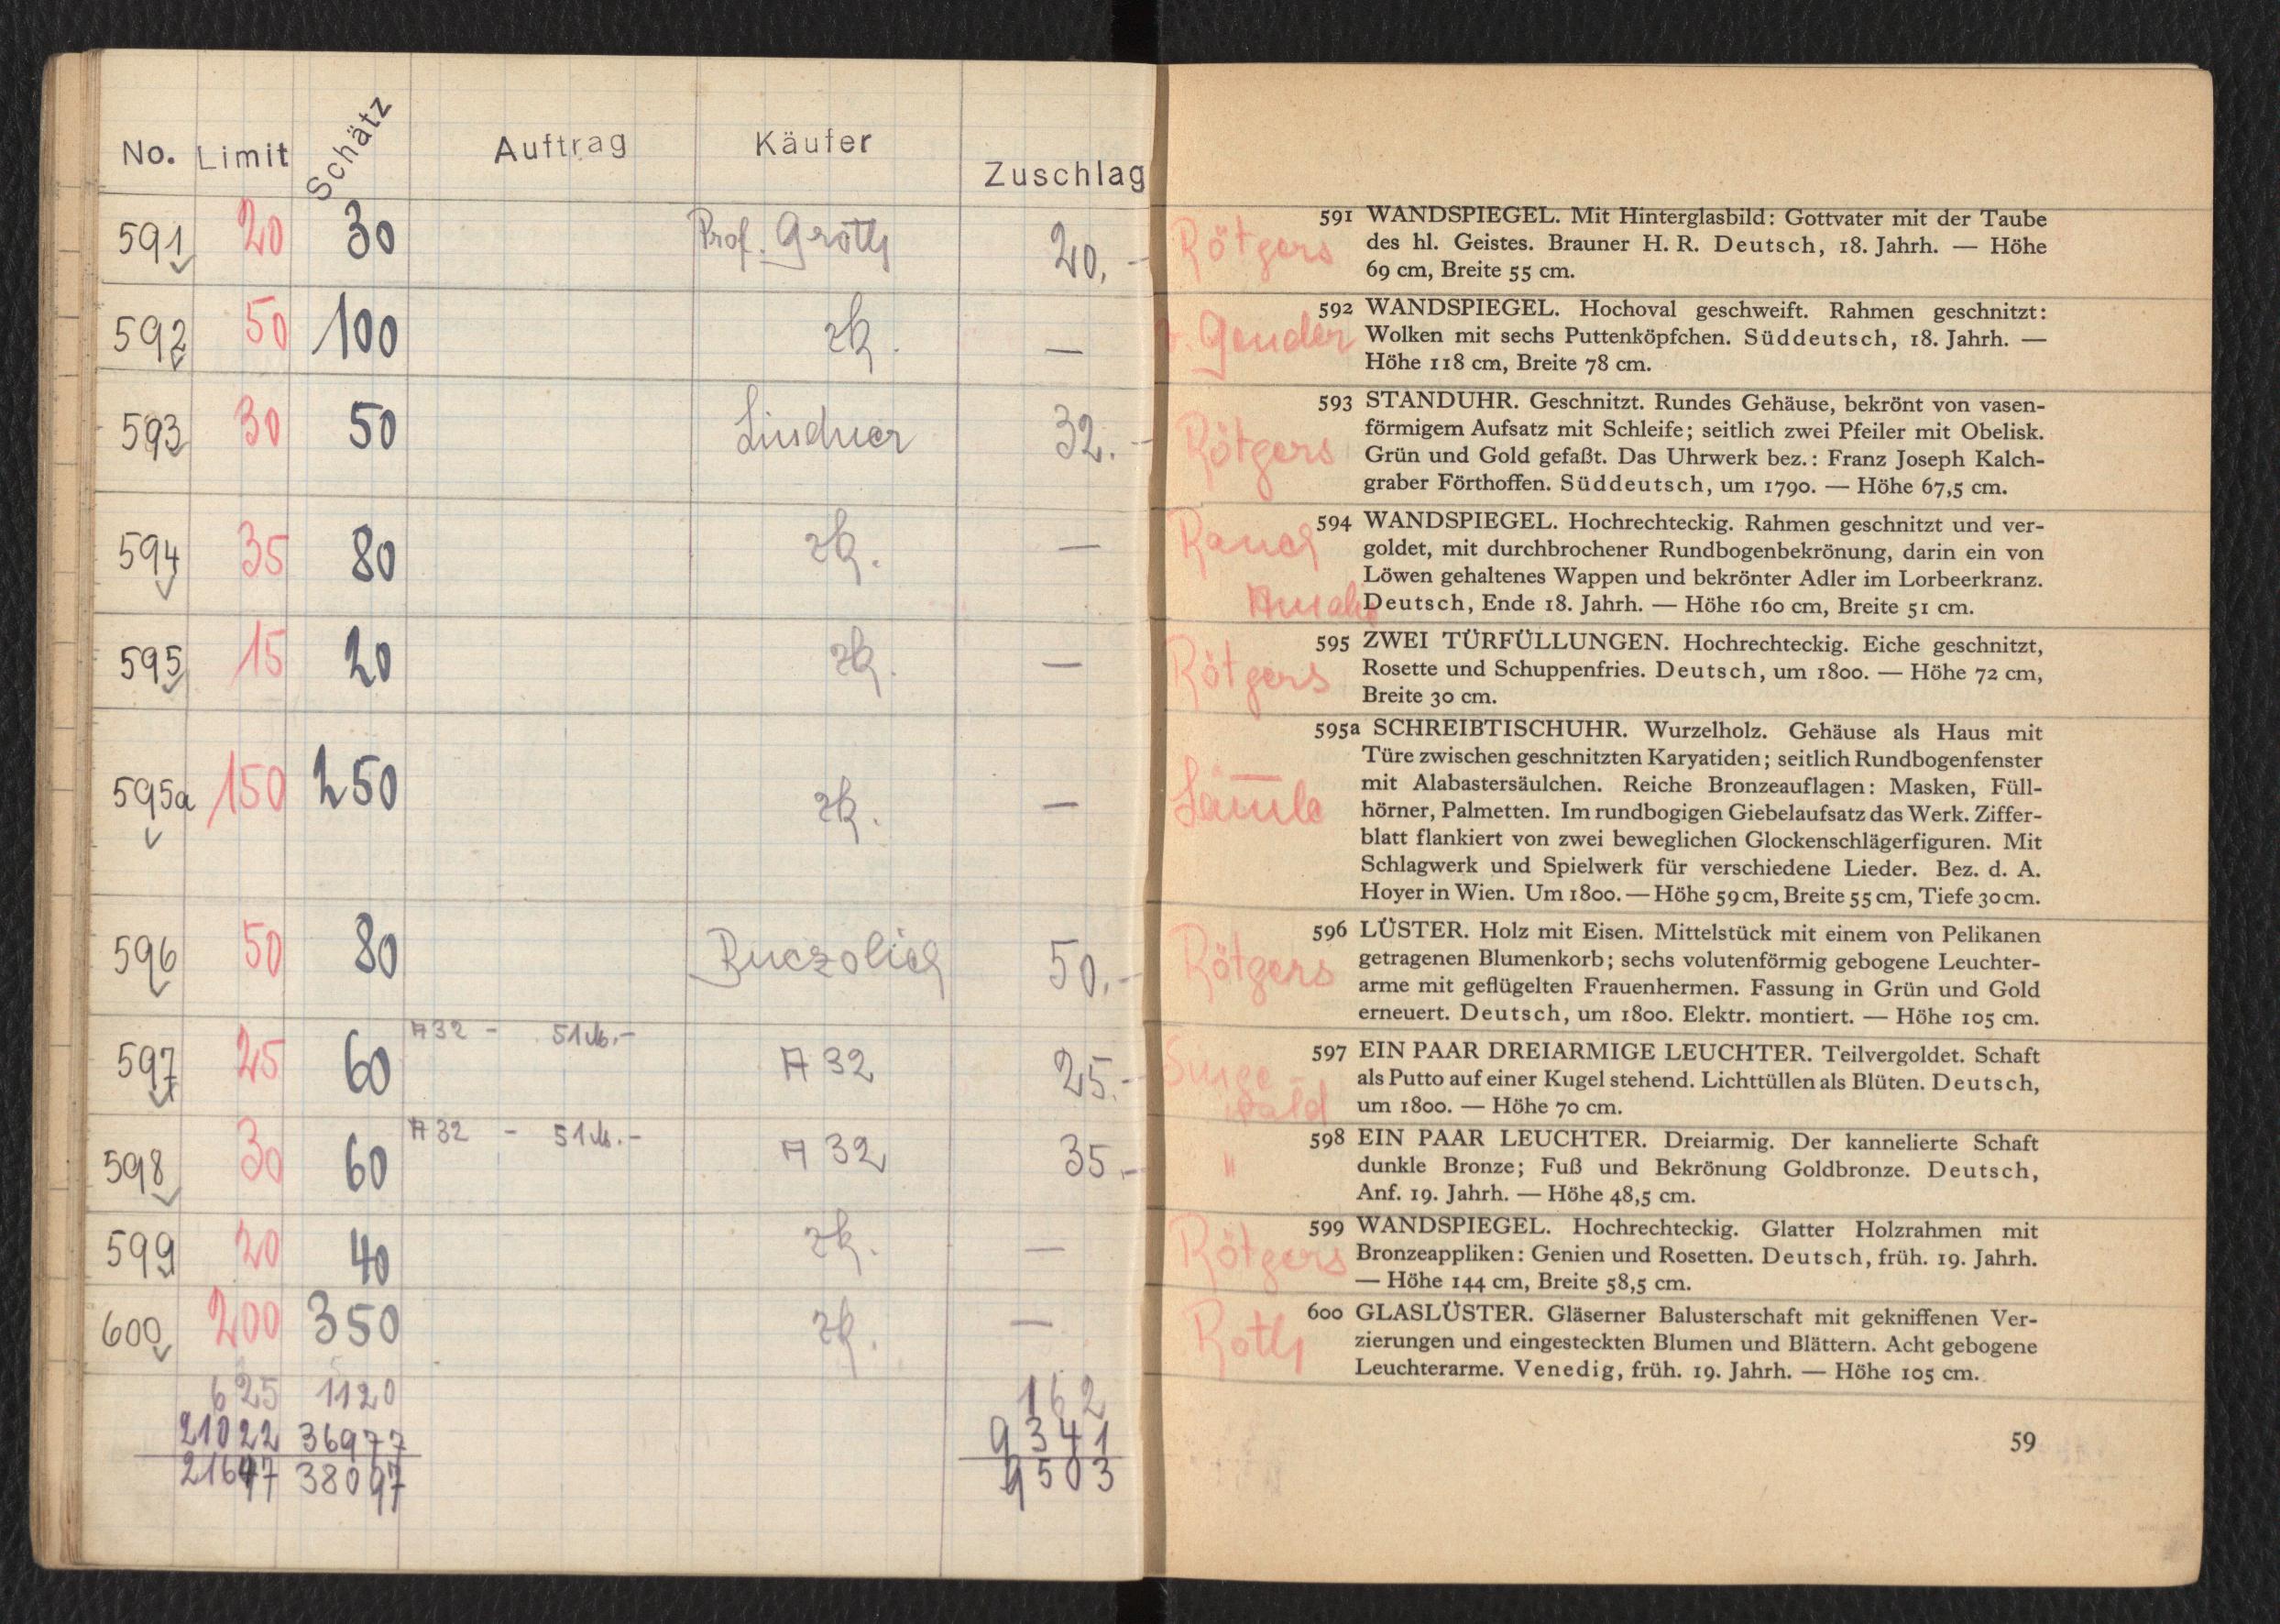 No. Limit Schätz Auftrag Käufer Zuschlag
591 20 30 Prof. Groth 20.-
592 50 100 zk. —
593 30 50 Lindner 32.-
594 35 80 zk. —
595 15 20 zk. —
595a 150 250 zk. —
596 50 80 Ruczolich 50.-
597 25 60 A 32 - 51 M.- A 32 25.-
598 30 60 A 32 - 51 M.- A 32 35.-
599 20 40 zk. —
600 200 350 zk. —
625 1120 162
21022 36977 9341
21647 38097 9503
Rötgers
591 WANDSPIEGEL. Mit Hinterglasbild: Gottvater mit der Taube
des hl. Geistes. Brauner H. R. Deutsch, 18. Jahrh. — Höhe
69 cm, Breite 55 cm.
592 WANDSPIEGEL. Hochoval geschweift. Rahmen geschnitzt:
Wolken mit sechs Puttenköpfchen. Süddeutsch, 18. Jahrh. —
Höhe 118 cm, Breite 78 cm.
Rötgers
593 STANDUHR. Geschnitzt. Rundes Gehäuse, bekrönt von vasen-
förmigem Aufsatz mit Schleife; seitlich zwei Pfeiler mit Obelisk.
Grün und Gold gefaßt. Das Uhrwerk bez.: Franz Joseph Kalch-
graber Förthoffen. Süddeutsch, um 1790. — Höhe 67,5 cm.
Rauch
594 WANDSPIEGEL. Hochrechteckig. Rahmen geschnitzt und ver-
goldet, mit durchbrochener Rundbogenbekrönung, darin ein von
Löwen gehaltenes Wappen und bekrönter Adler im Lorbeerkranz.
Deutsch, Ende 18. Jahrh. — Höhe 160 cm, Breite 51 cm.
Rötgers
595 ZWEI TÜRFÜLLUNGEN. Hochrechteckig. Eiche geschnitzt,
Rosette und Schuppenfries. Deutsch, um 1800. — Höhe 72 cm,
Breite 30 cm.
Lämle
595a SCHREIBTISCHUHR. Wurzelholz. Gehäuse als Haus mit
Türe zwischen geschnitzten Karyatiden; seitlich Rundbogenfenster
mit Alabastersäulchen. Reiche Bronzeauflagen: Masken, Füll-
hörner, Palmetten. Im rundbogigen Giebelaufsatz das Werk. Ziffer-
blatt flankiert von zwei beweglichen Glockenschlägerfiguren. Mit
Schlagwerk und Spielwerk für verschiedene Lieder. Bez. d. A.
Hoyer in Wien. Um 1800. — Höhe 59 cm, Breite 55 cm, Tiefe 30 cm.
Rötgers
596 LÜSTER. Holz mit Eisen. Mittelstück mit einem von Pelikanen
getragenen Blumenkorb; sechs volutenförmig gebogene Leuchter-
arme mit geflügelten Frauenhermen. Fassung in Grün und Gold
erneuert. Deutsch, um 1800. Elektr. montiert. — Höhe 105 cm.
Singe-
wald
597 EIN PAAR DREIARMIGE LEUCHTER. Teilvergoldet. Schaft
als Putto auf einer Kugel stehend. Lichttüllen als Blüten. Deutsch,
um 1800. — Höhe 70 cm.
"
598 EIN PAAR LEUCHTER. Dreiarmig. Der kannelierte Schaft
dunkle Bronze; Fuß und Bekrönung Goldbronze. Deutsch,
Anf. 19. Jahrh. — Höhe 48,5 cm.
Rötgers
599 WANDSPIEGEL. Hochrechteckig. Glatter Holzrahmen mit
Bronzeappliken: Genien und Rosetten. Deutsch, früh. 19. Jahrh.
— Höhe 144 cm, Breite 58,5 cm.
Roth
600 GLASLÜSTER. Gläserner Balusterschaft mit gekniffenen Ver-
zierungen und eingesteckten Blumen und Blättern. Acht gebogene
Leuchterarme. Venedig, früh. 19. Jahrh. — Höhe 105 cm.
59